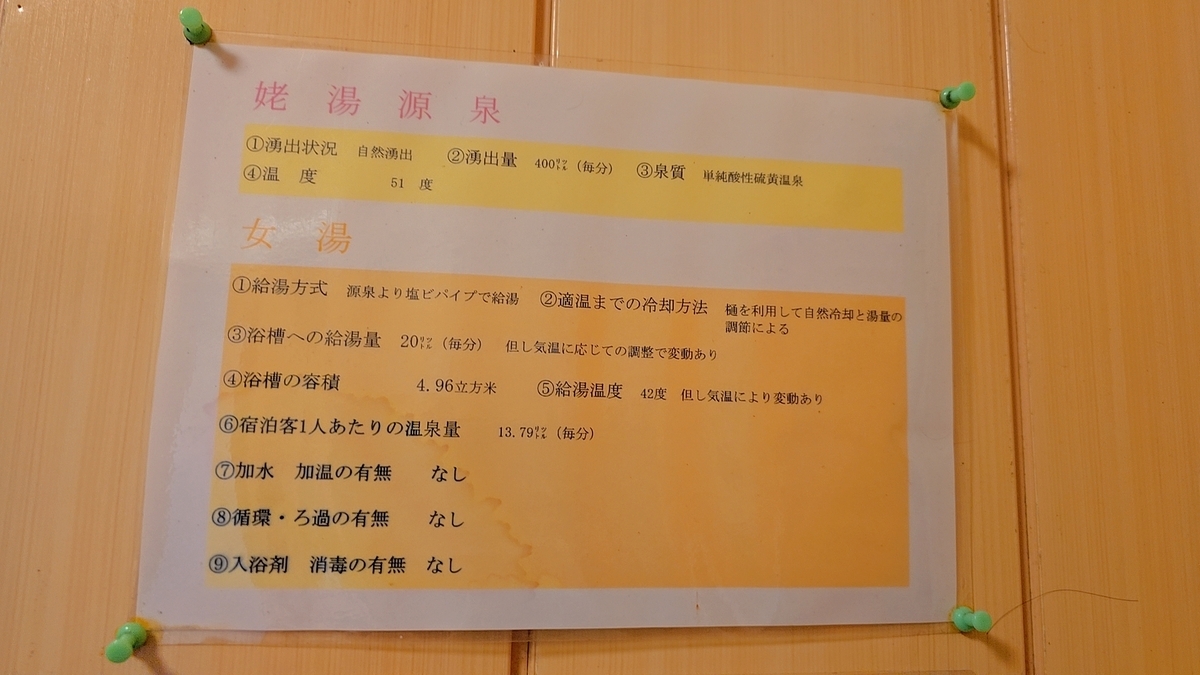 姥湯源泉
①湧出状況 自然湧出 ②湧出量 400㍑（毎分） ③泉質 単純酸性硫黄温泉
④温度 51 度
女湯
①給湯方式 源泉より塩ビパイプで給湯 ②適温までの冷却方法 樋を利用して自然冷却と湯量の
調節による
③浴槽への給湯量 20㍑（毎分） 但し気温に応じての調整で変動あり
④浴槽の容積 4.96立方米 ⑤給湯温度 42度 但し気温により変動あり
⑥宿泊客1人あたりの温泉量 13.79㍑（毎分）
⑦加水 加温の有無 なし
⑧循環・ろ過の有無 なし
⑨入浴剤 消毒の有無 なし